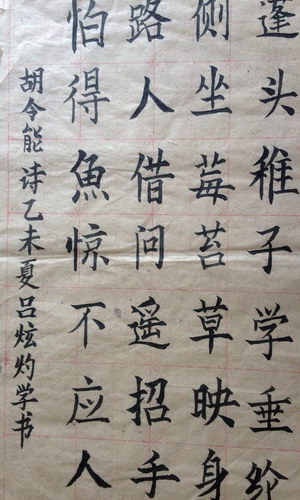 蓬头稚子学垂纶
侧坐莓苔草映身
路人借问遥招手
怕得魚惊不应人
胡令能诗乙未夏吕炫灼学书